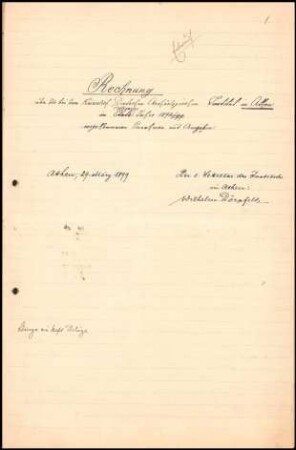 1.
Rechnung
über die bei dem Kaiserlich Deutschen Archäologischen Institut in Athen
im Jahre 1898/99
vorgekommenen Einnahmen und Ausgaben
Athen, 29. März 1899
Der I. Secretar des Instituts
in Athen:
Wilhelm Dörpfeld